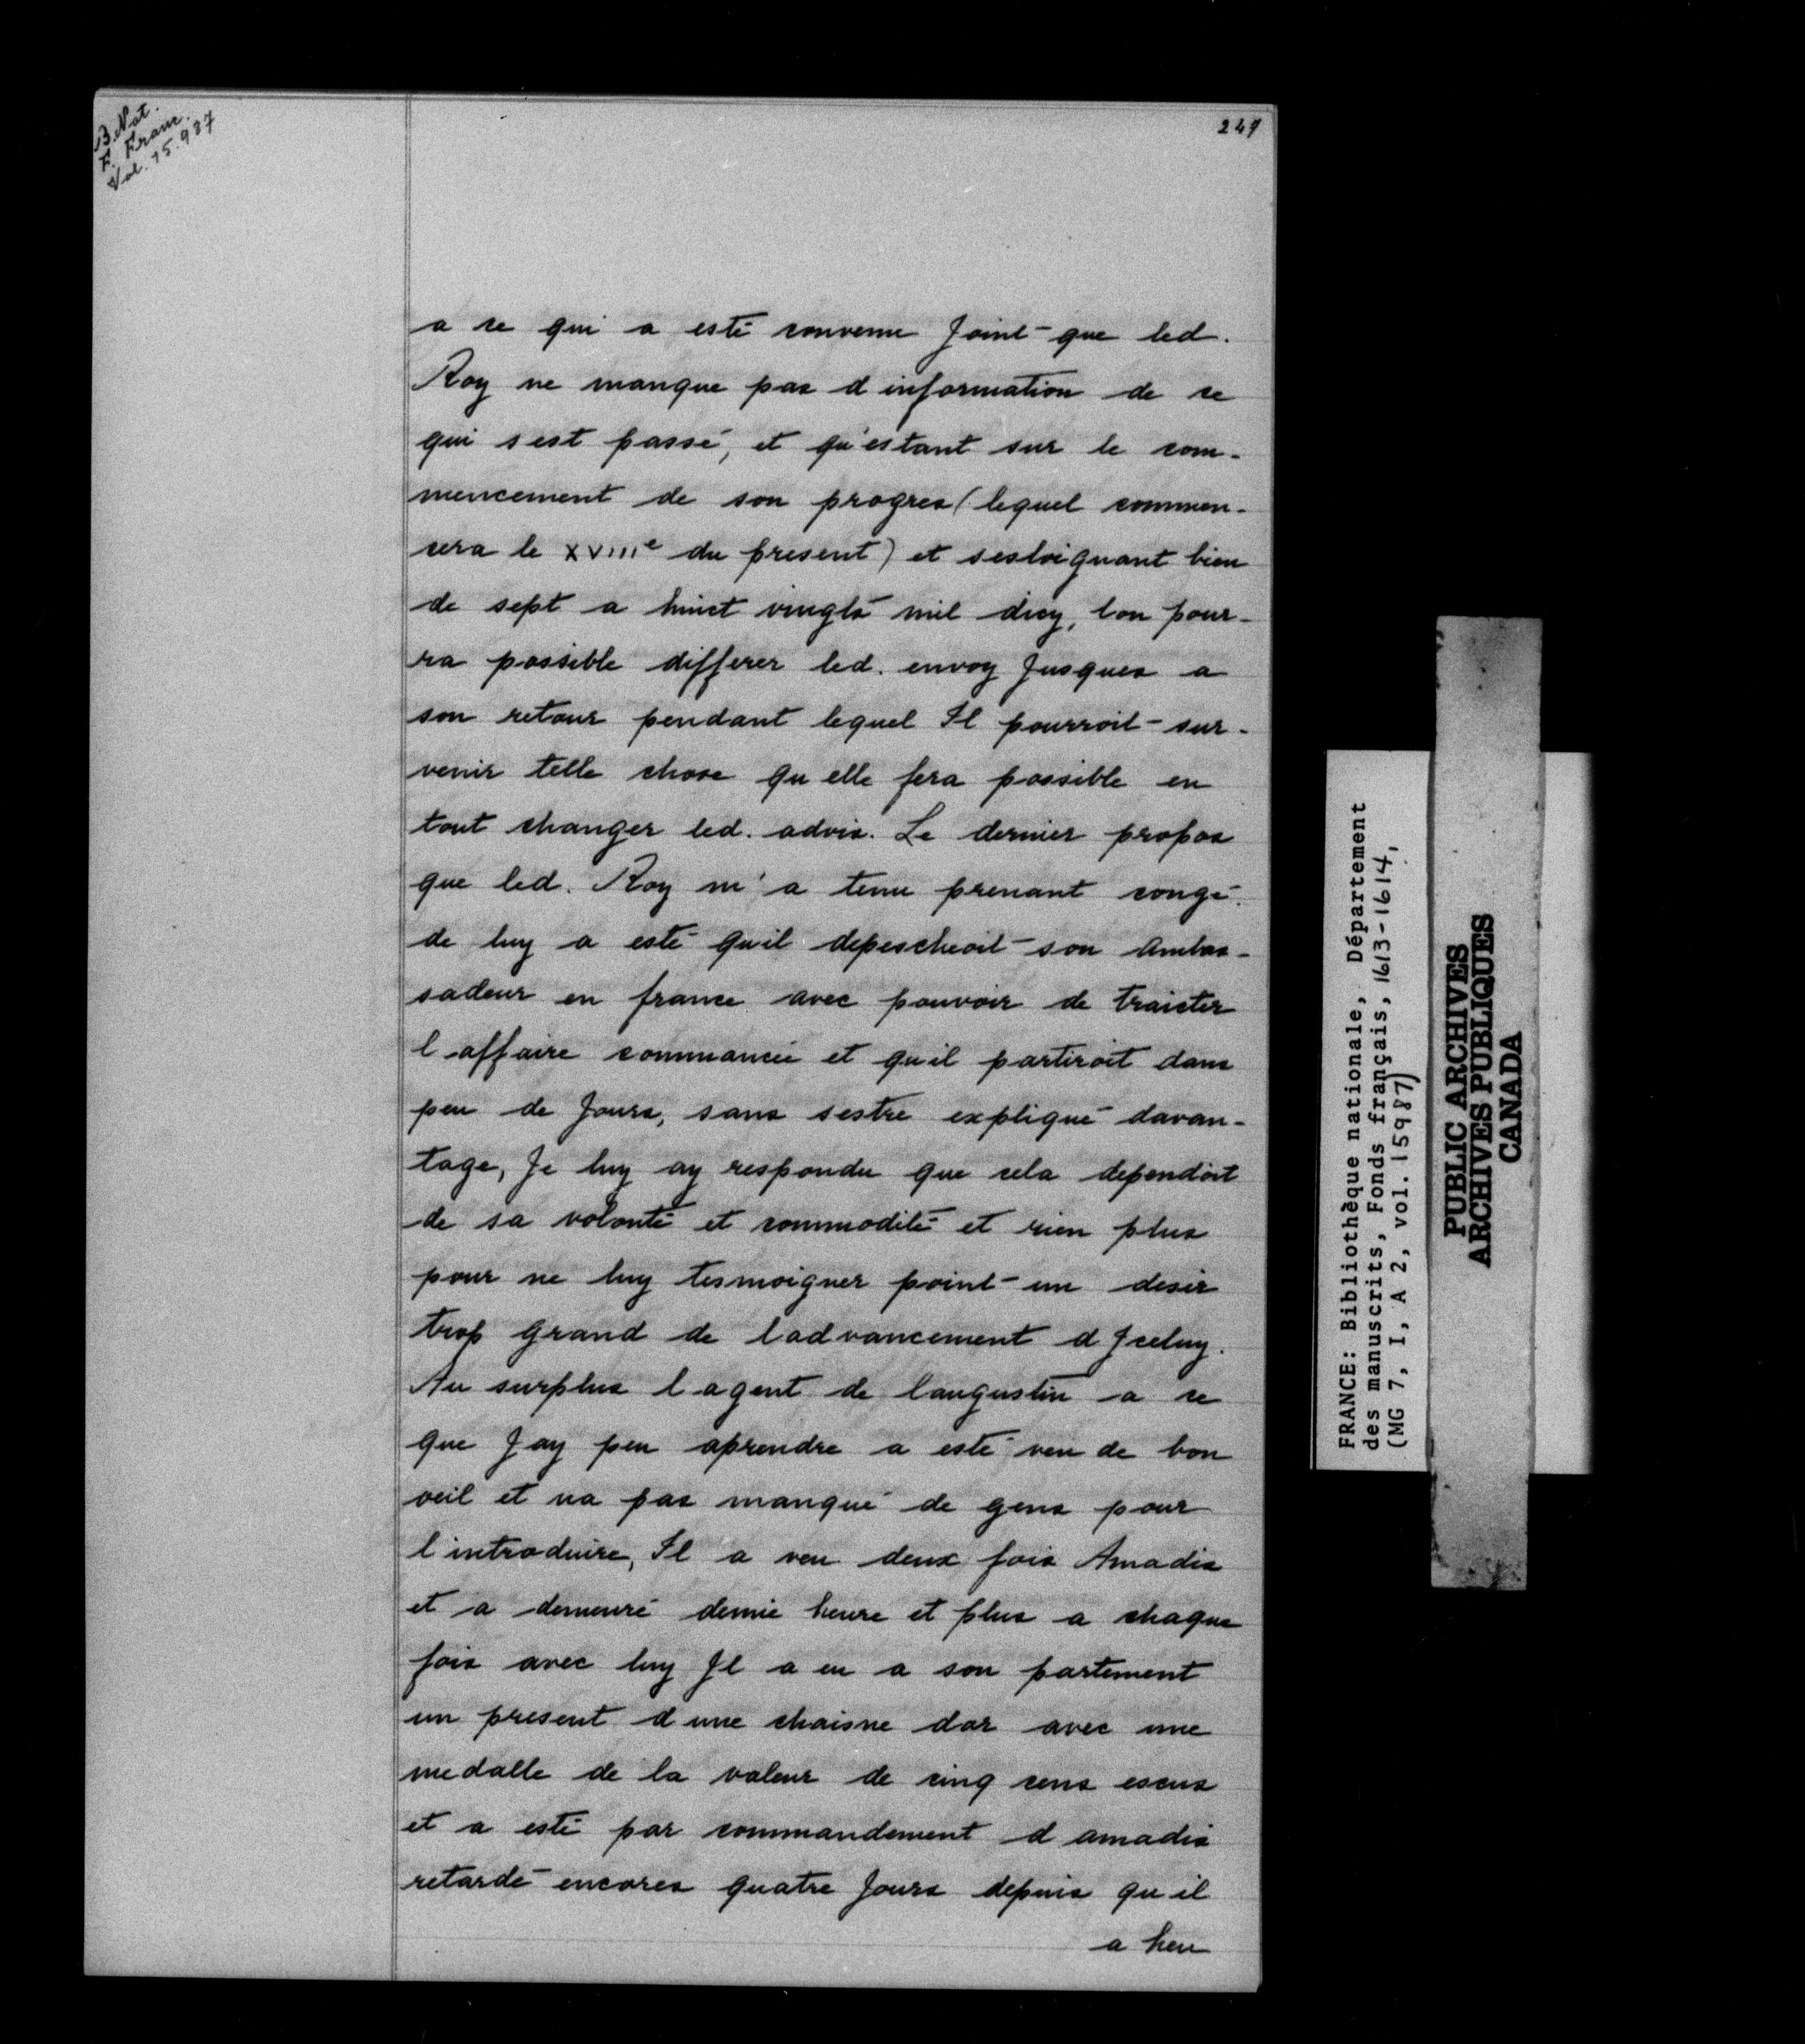 B. Nat.
F. Franc.
Vol. 15.987
249
a ce qui a esté convenu Joint que led.
Roy ne manque pas d information de ce
qui s est passé, et qu'estant sur le com-
mencement de son progres (lequel commen-
cera le XVIIIe du present) et sesloignant bien
de sept a huict vingts mil dicy, lon pour-
ra possible differer led. envoy Jusques a
son retour pendant lequel Il pourroit sur-
venir telle chose qu elle fera possible en
tout changer led. advis. Le dernier propos
que led. Roy m'a tenu prenant congé
de luy a esté quil depescheoit son ambas-
sadeur en france avec pouvoir de traicter
l affaire commancée et quil partiroit dans
peu de Jours, sans sestre expliqué davan-
tage, Je luy ay respondu que cela dependoit
de sa volonté et commodité et rien plus
pour ne luy tesmoigner point un desir
trop grand de ladvancement d Jceluy.
Au surplus l agent de laugustin a ce
que J ay peu aprendre a esté veu de bon
oeil et na pas manqué de gens pour
l introduire, Il a veu deux fois Amadis
et a demeuré demie heure et plus a chaque
fois avec luy Jl a eu a son partement
un present d une chaisne dor avec une
medalle de la valeur de cinq cens escus
et a esté par commandement d amadis
retardé encores quatre Jours depuis qu il
a heu
FRANCE: Bibliothèque nationale, Département
des manuscrits, Fonds français, 1613-1614,
(MG 7, I, A 2, vol. 15987)
PUBLIC ARCHIVES
ARCHIVES PUBLIQUES
CANADA